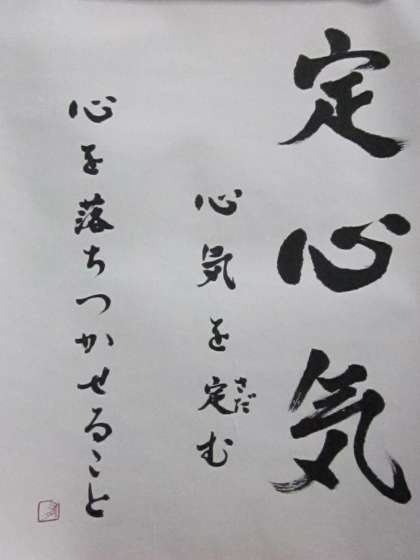 定心気
心気を定む
さだ
心を落ちつかせること